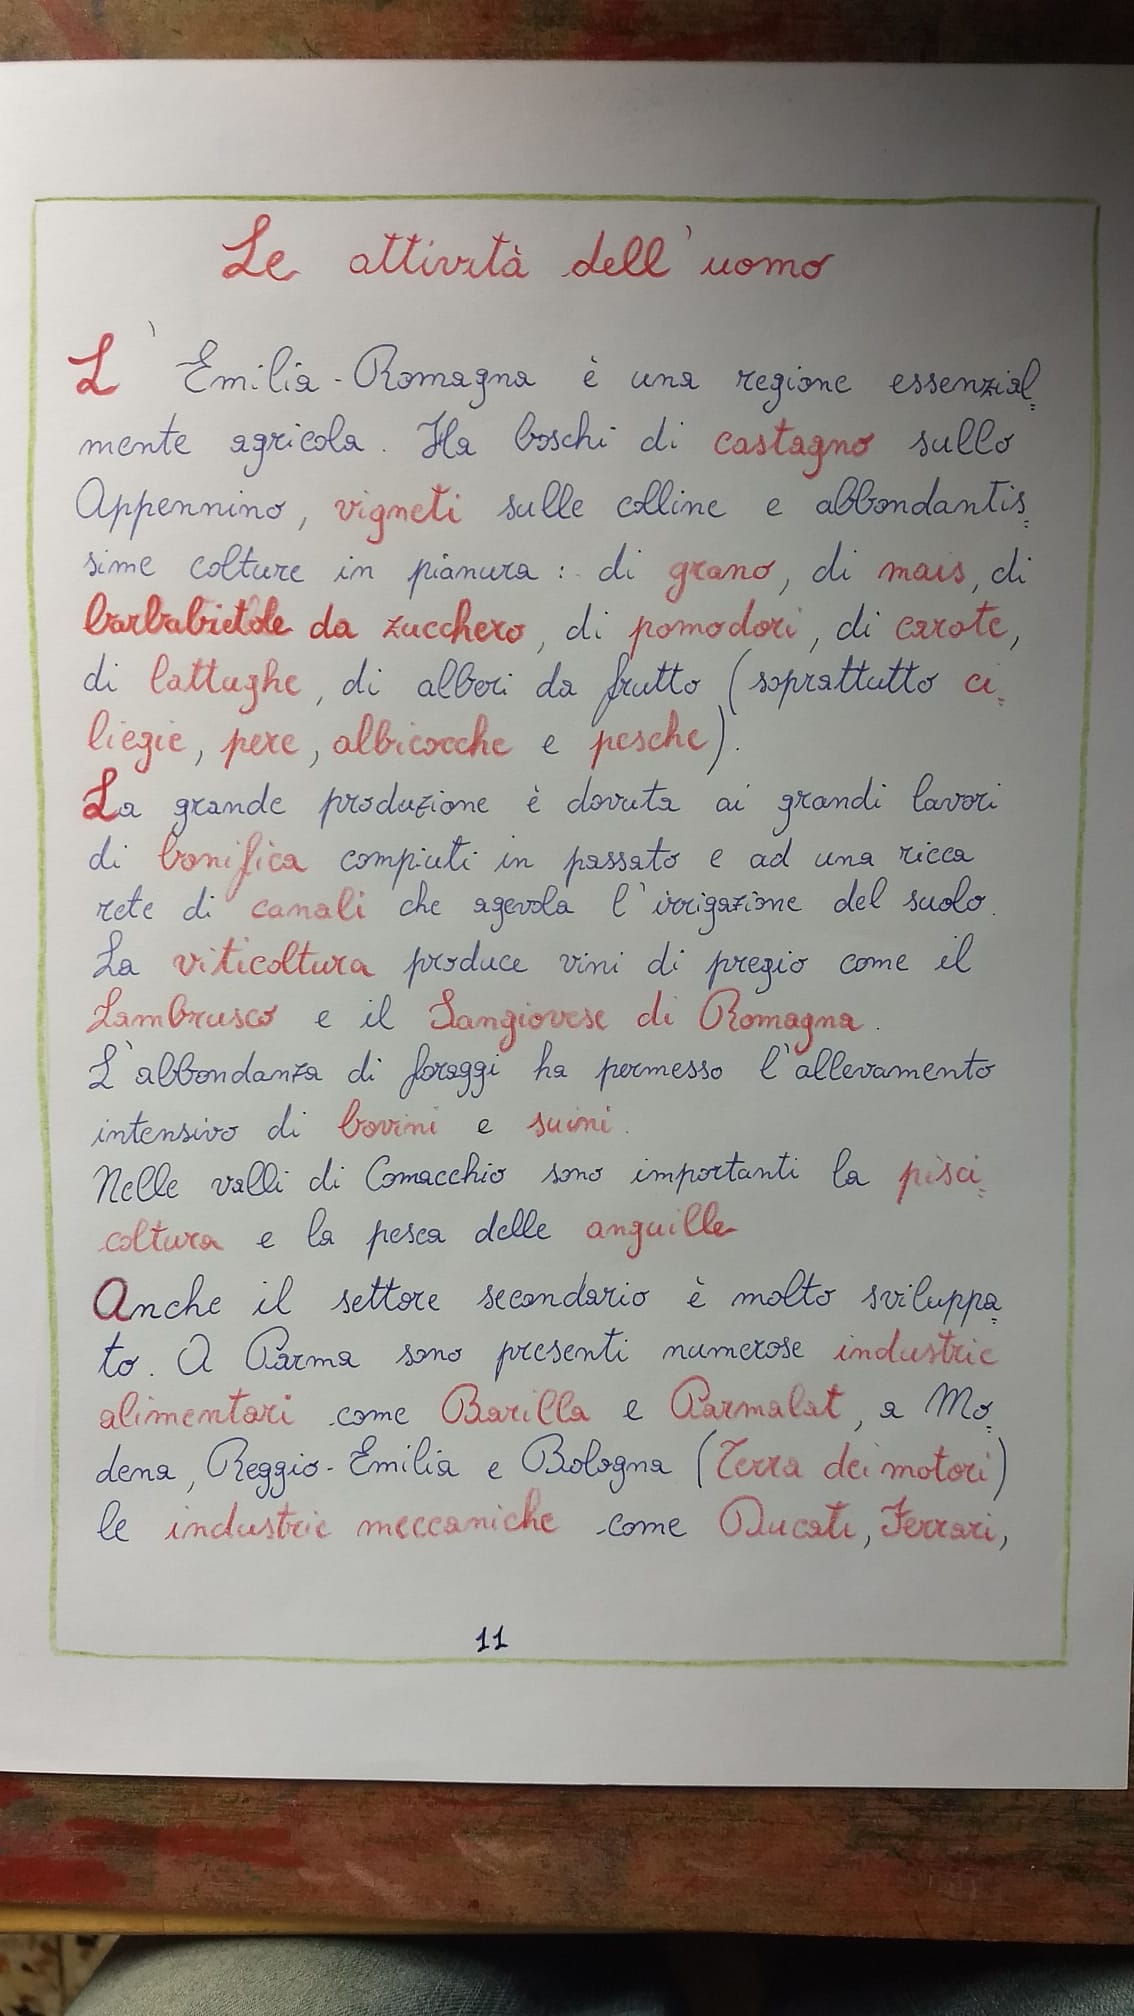 Le attività dell'uomo
L'Emilia-Romagna è una regione essenzial=
mente agricola. Ha boschi di castagno sullo
Appennino, vigneti sulle colline e abbondantis=
sime colture in pianura: di grano, di mais, di
barbabietole da zucchero, di pomodori, di carote,
di lattughe, di alberi da frutto (soprattutto ci=
liegie, pere, albicocche e pesche).
La grande produzione è dovuta ai grandi lavori
di bonifica compiuti in passato e ad una ricca
rete di canali che agevola l'irrigazione del suolo.
La viticoltura produce vini di pregio come il
Lambrusco e il Sangiovese di Romagna.
L'abbondanza di foraggi ha permesso l'allevamento
intensivo di bovini e suini.
Nelle valli di Comacchio sono importanti la pisci=
coltura e la pesca delle anguille
Anche il settore secondario è molto sviluppa=
to. A Parma sono presenti numerose industrie
alimentari come Barilla e Parmalat, a Mo=
dena, Reggio-Emilia e Bologna (Terra dei motori)
le industrie meccaniche come Ducati, Ferrari,
11